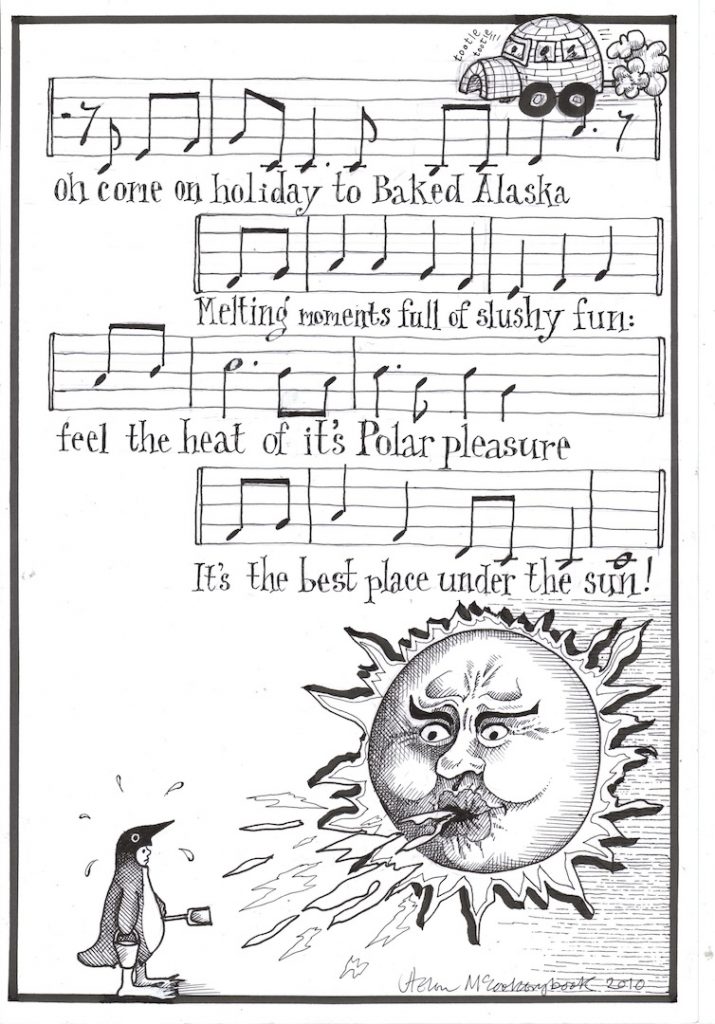 tootle
tootle!!!
oh come on holiday to Baked Alaska
Melting moments full of slushy fun:
feel the heat of it's Polar pleasure
It's the best place under the sun!
Helen McCookerybook 2010